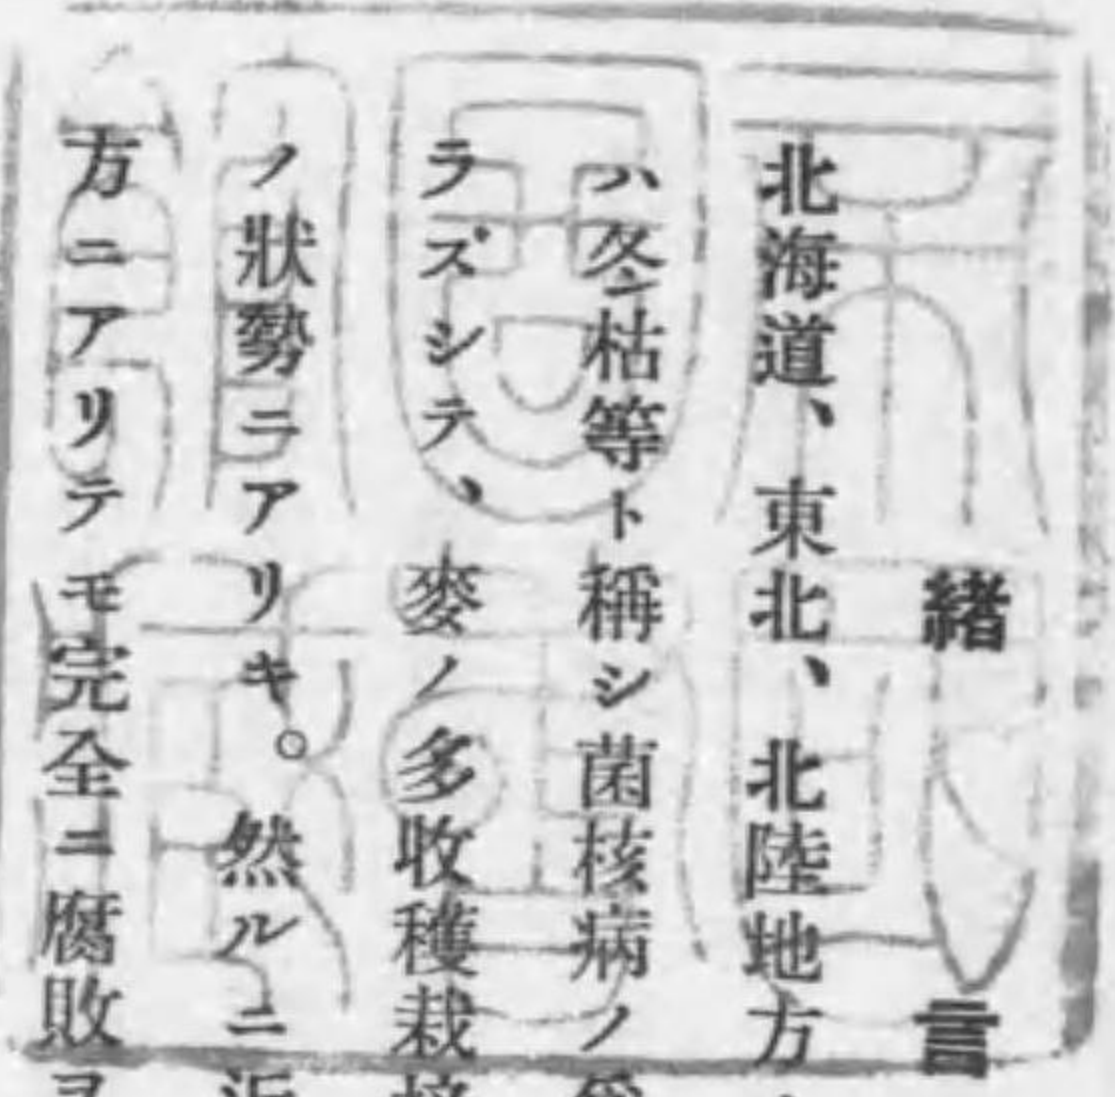 緒言
北海道、東北、北陸地方
ハ冬枯等ト稱シ菌核病ノ
ラズシテ、麥ノ多收穫栽培
ノ狀勢ニアリキ。然ルニ近
方ニアリテモ完全ニ腐敗ヲ